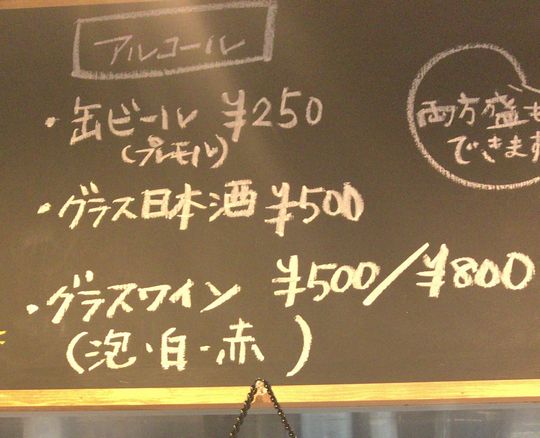 アルコール
・缶ビール ¥250
(プレモル)
・グラス日本酒 ¥500
・グラスワイン ¥500/¥800
(泡・白・赤)
両方盛も
できます